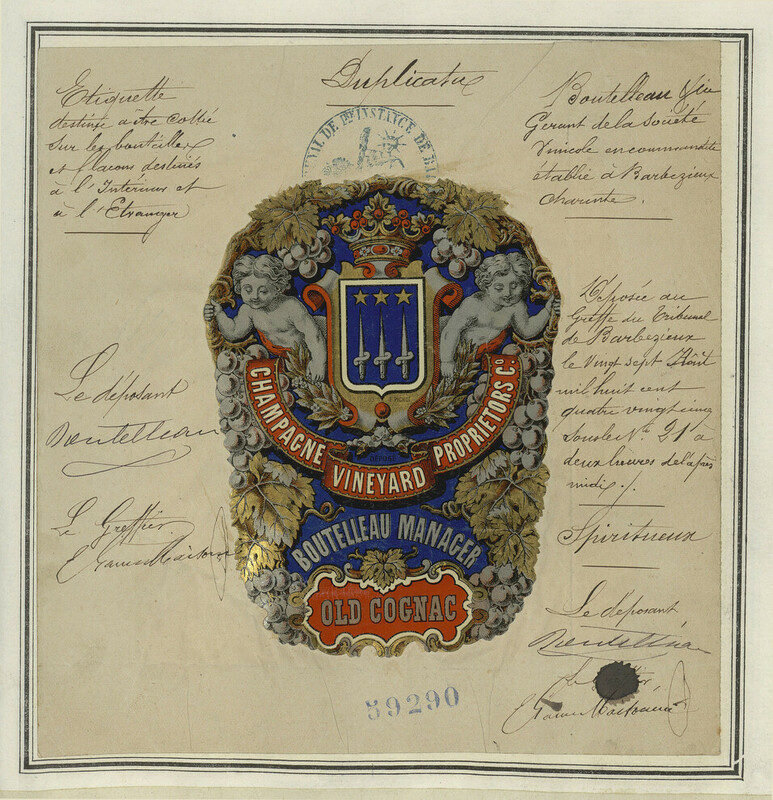 Duplicata
Etiquette
destinée à être collée
sur les bouteilles
et flacons destinés
à l'Intérieur et
à l'Etranger
Boutelleau
Gérant de la Société
Vinicole en commandite
établie à Barbezieux
Charente.
TRIBUNAL DE Pre INSTANCE DE
CHAMPAGNE VINEYARD PROPRIETORS Co.
BOUTELLEAU MANAGER
OLD COGNAC
Le déposant
Boutelleau
Le Greffier
Déposée au
Greffe du Tribunal
de Barbezieux
le vingt sept Août
mil huit cent
quatre vingt cinq
sous le No. 21 à
deux heures de l'après
midi.
Spiritueux
Le déposant
Boutelleau
59290